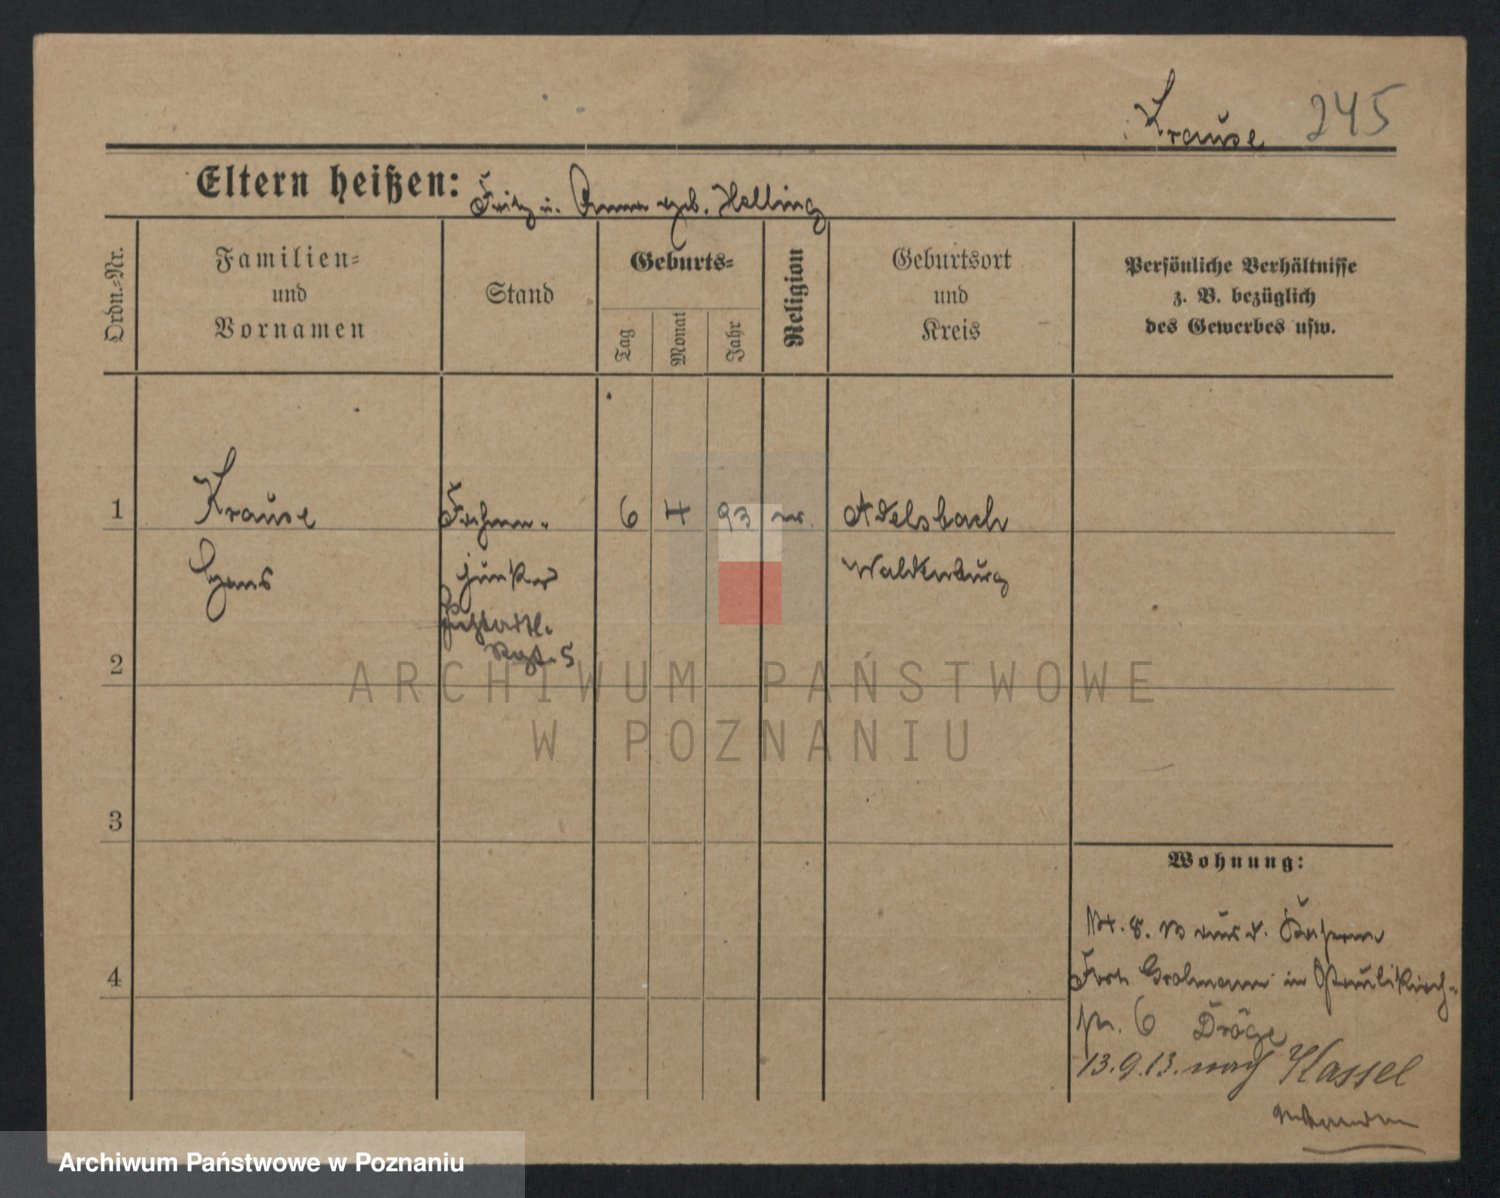 Krause 245
Eltern heißen: Fritz u. Anna geb. Helling
Ordn.=Nr.
Familien=
und
Vornamen
Stand
Geburts=
Tag
Monat
Jahr
Religion
Geburtsort
und
Kreis
Persönliche Verhältnisse
z. B. bezüglich
des Gewerbes usw.
1 Krause Fahnen- 6 4 93 ev. Adelsbach
Hans junker Waldenburg
Fußartl.
Regt. 5
2
3
4
ARCHIWUM PAŃSTWOWE
W POZNANIU
Wohnung:
aus d. Kaserne
Fort Grolman in Paulikirch-
str. 6 Dröge
13.9.13. nach Kassel
Archiwum Państwowe w Poznaniu